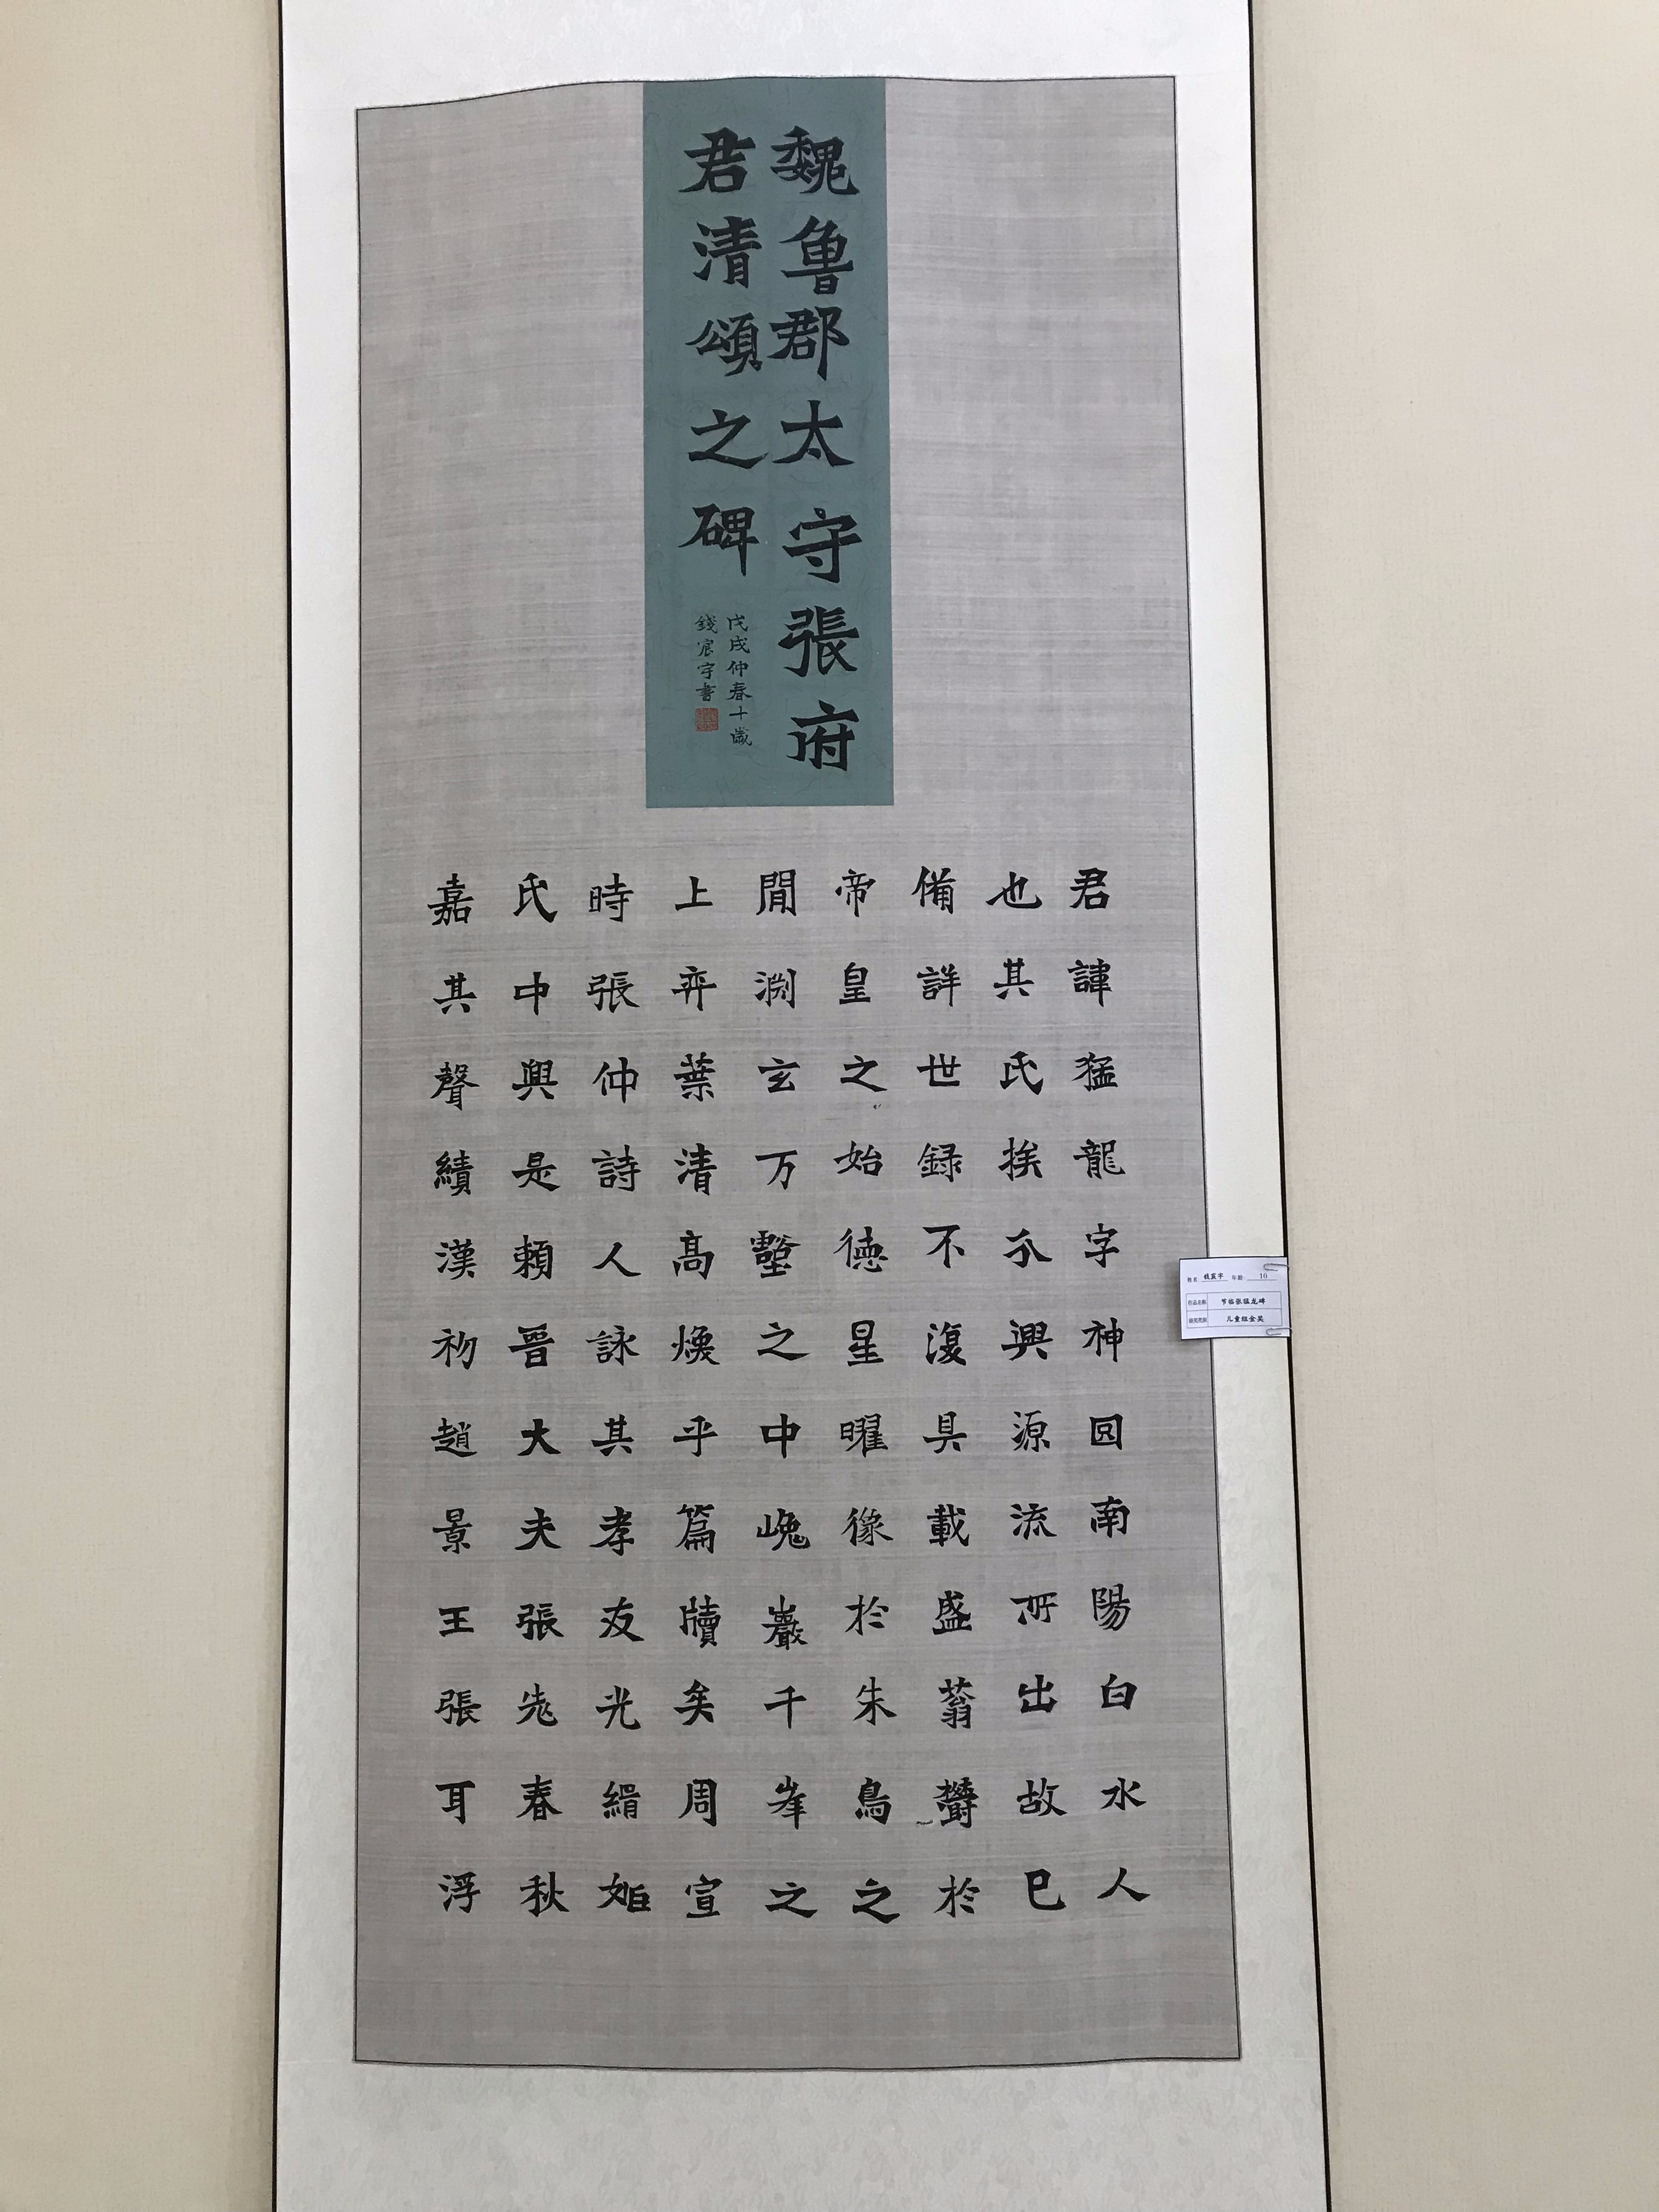 魏魯郡太守張府
君清頌之碑
戊戌仲春十歲
錢宸宇書
君諱猛龍字神囧南陽白水人
也其氏族分興源流所出故已
備詳世録不復具載盛蓊欝於
帝皇之始德星曜像於朱鳥之
閒渊玄万壑之中巉巖千峯之
上弈葉清高煥乎篇牘矣周宣
時張仲詩人詠其孝友光緝姬
氏中興是賴晉大夫張老春秋
嘉其聲績漢初趙景王張耳浮
姓名 钱宸宇 年龄 10
作品名称 节临张猛龙碑
儿童组金奖